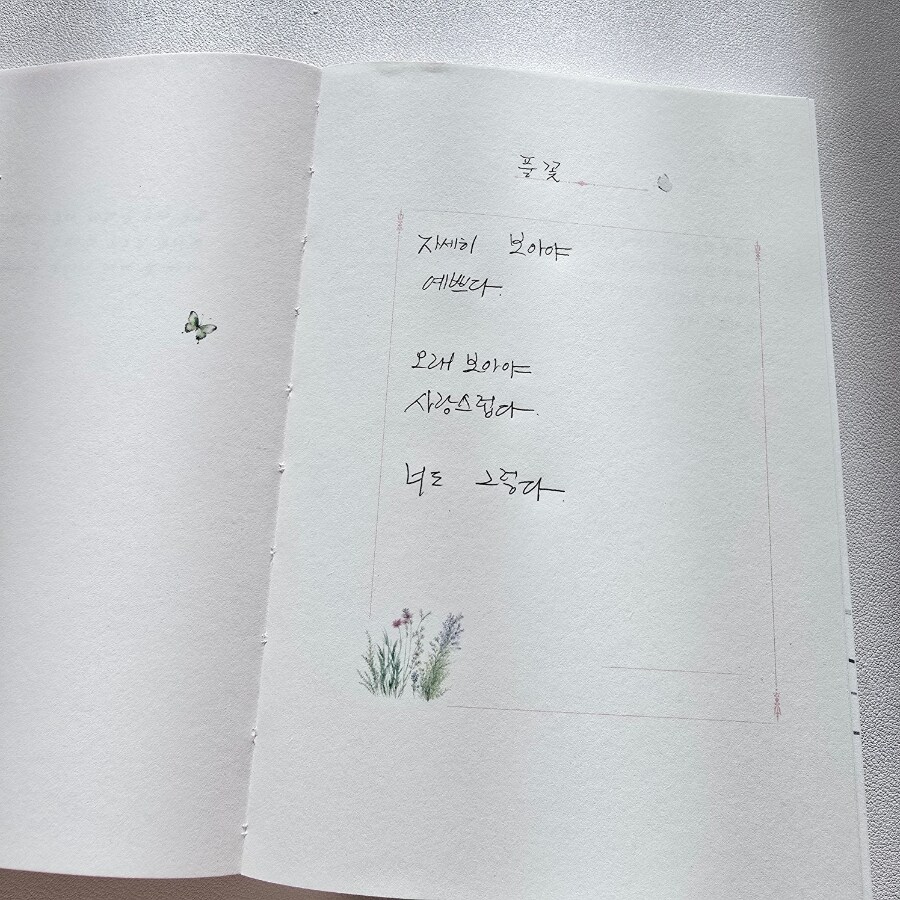 풀꽃
자세히 보아야
예쁘다.
오래 보아야
사랑스럽다.
너도 그렇다.